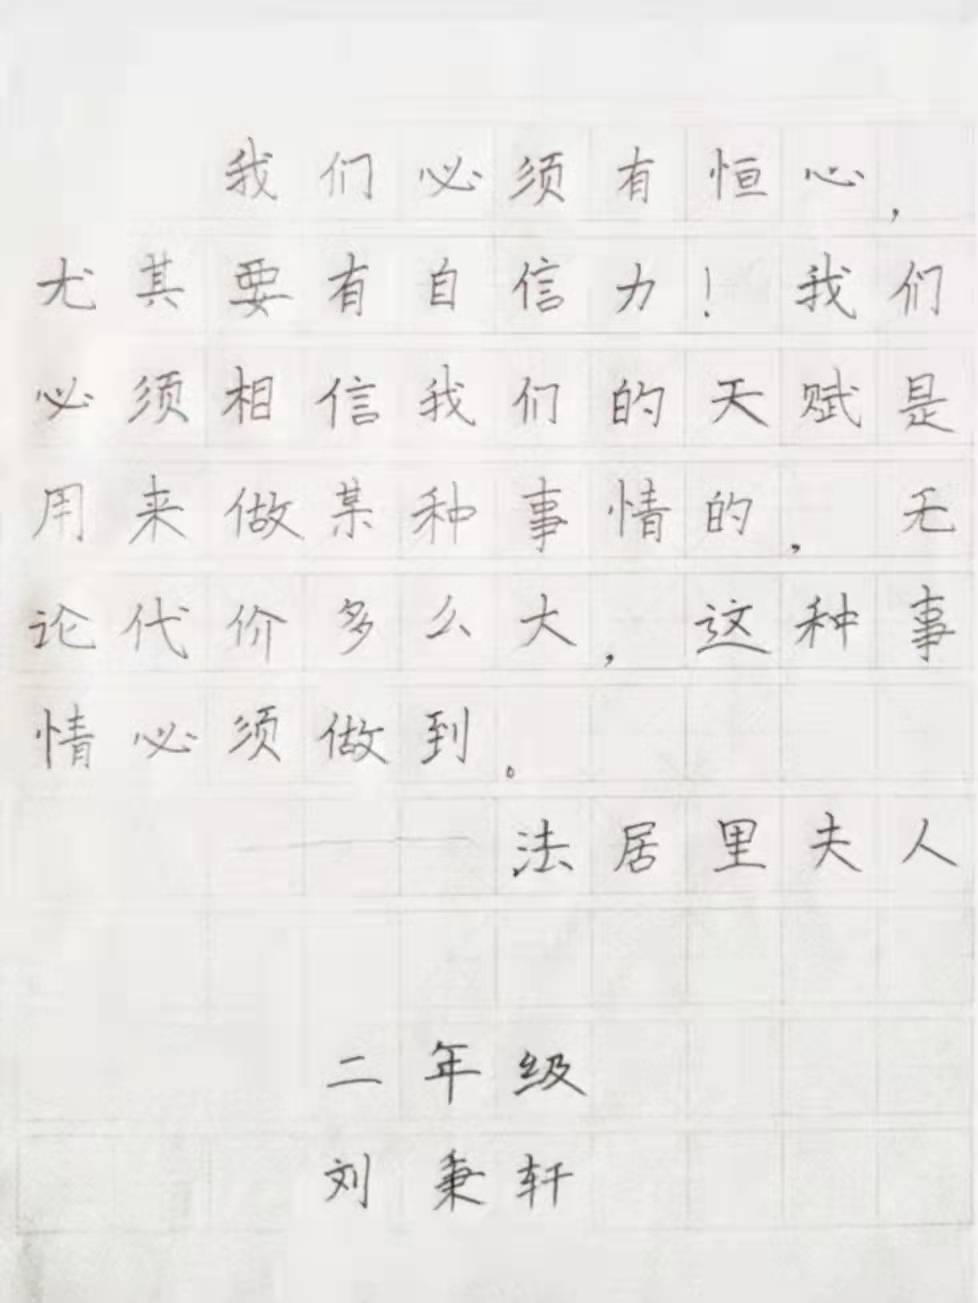 我们必须有恒心，
尤其要有自信力！我们
必须相信我们的天赋是
用来做某种事情的，无
论代价多么大，这种事
情必须做到。
——法居里夫人
二年级
刘秉轩